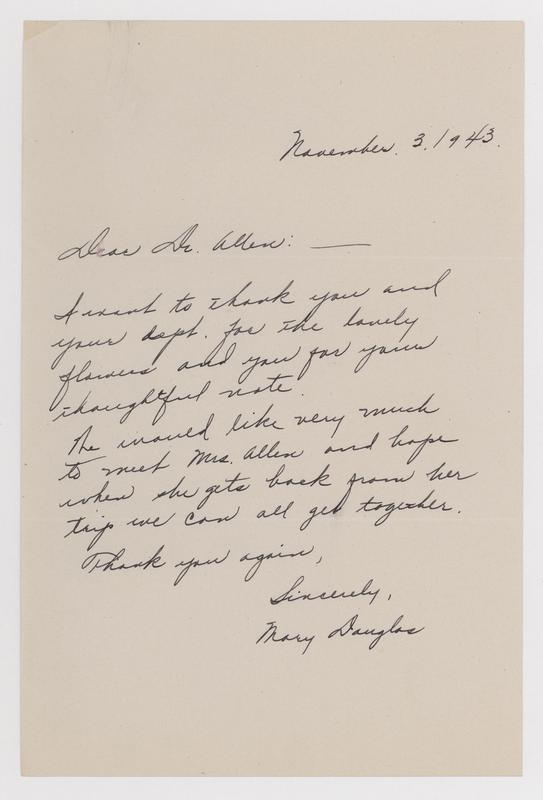 November. 3. 1943.
Dear Dr. Allen: —
I want to thank you and
your dept. for the lovely
flowers and you for your
thoughtful note.
We would like very much
to meet Mrs. Allen and hope
when she gets back from her
trip we can all get together.
Thank you again,
Sincerely,
Mary Douglas